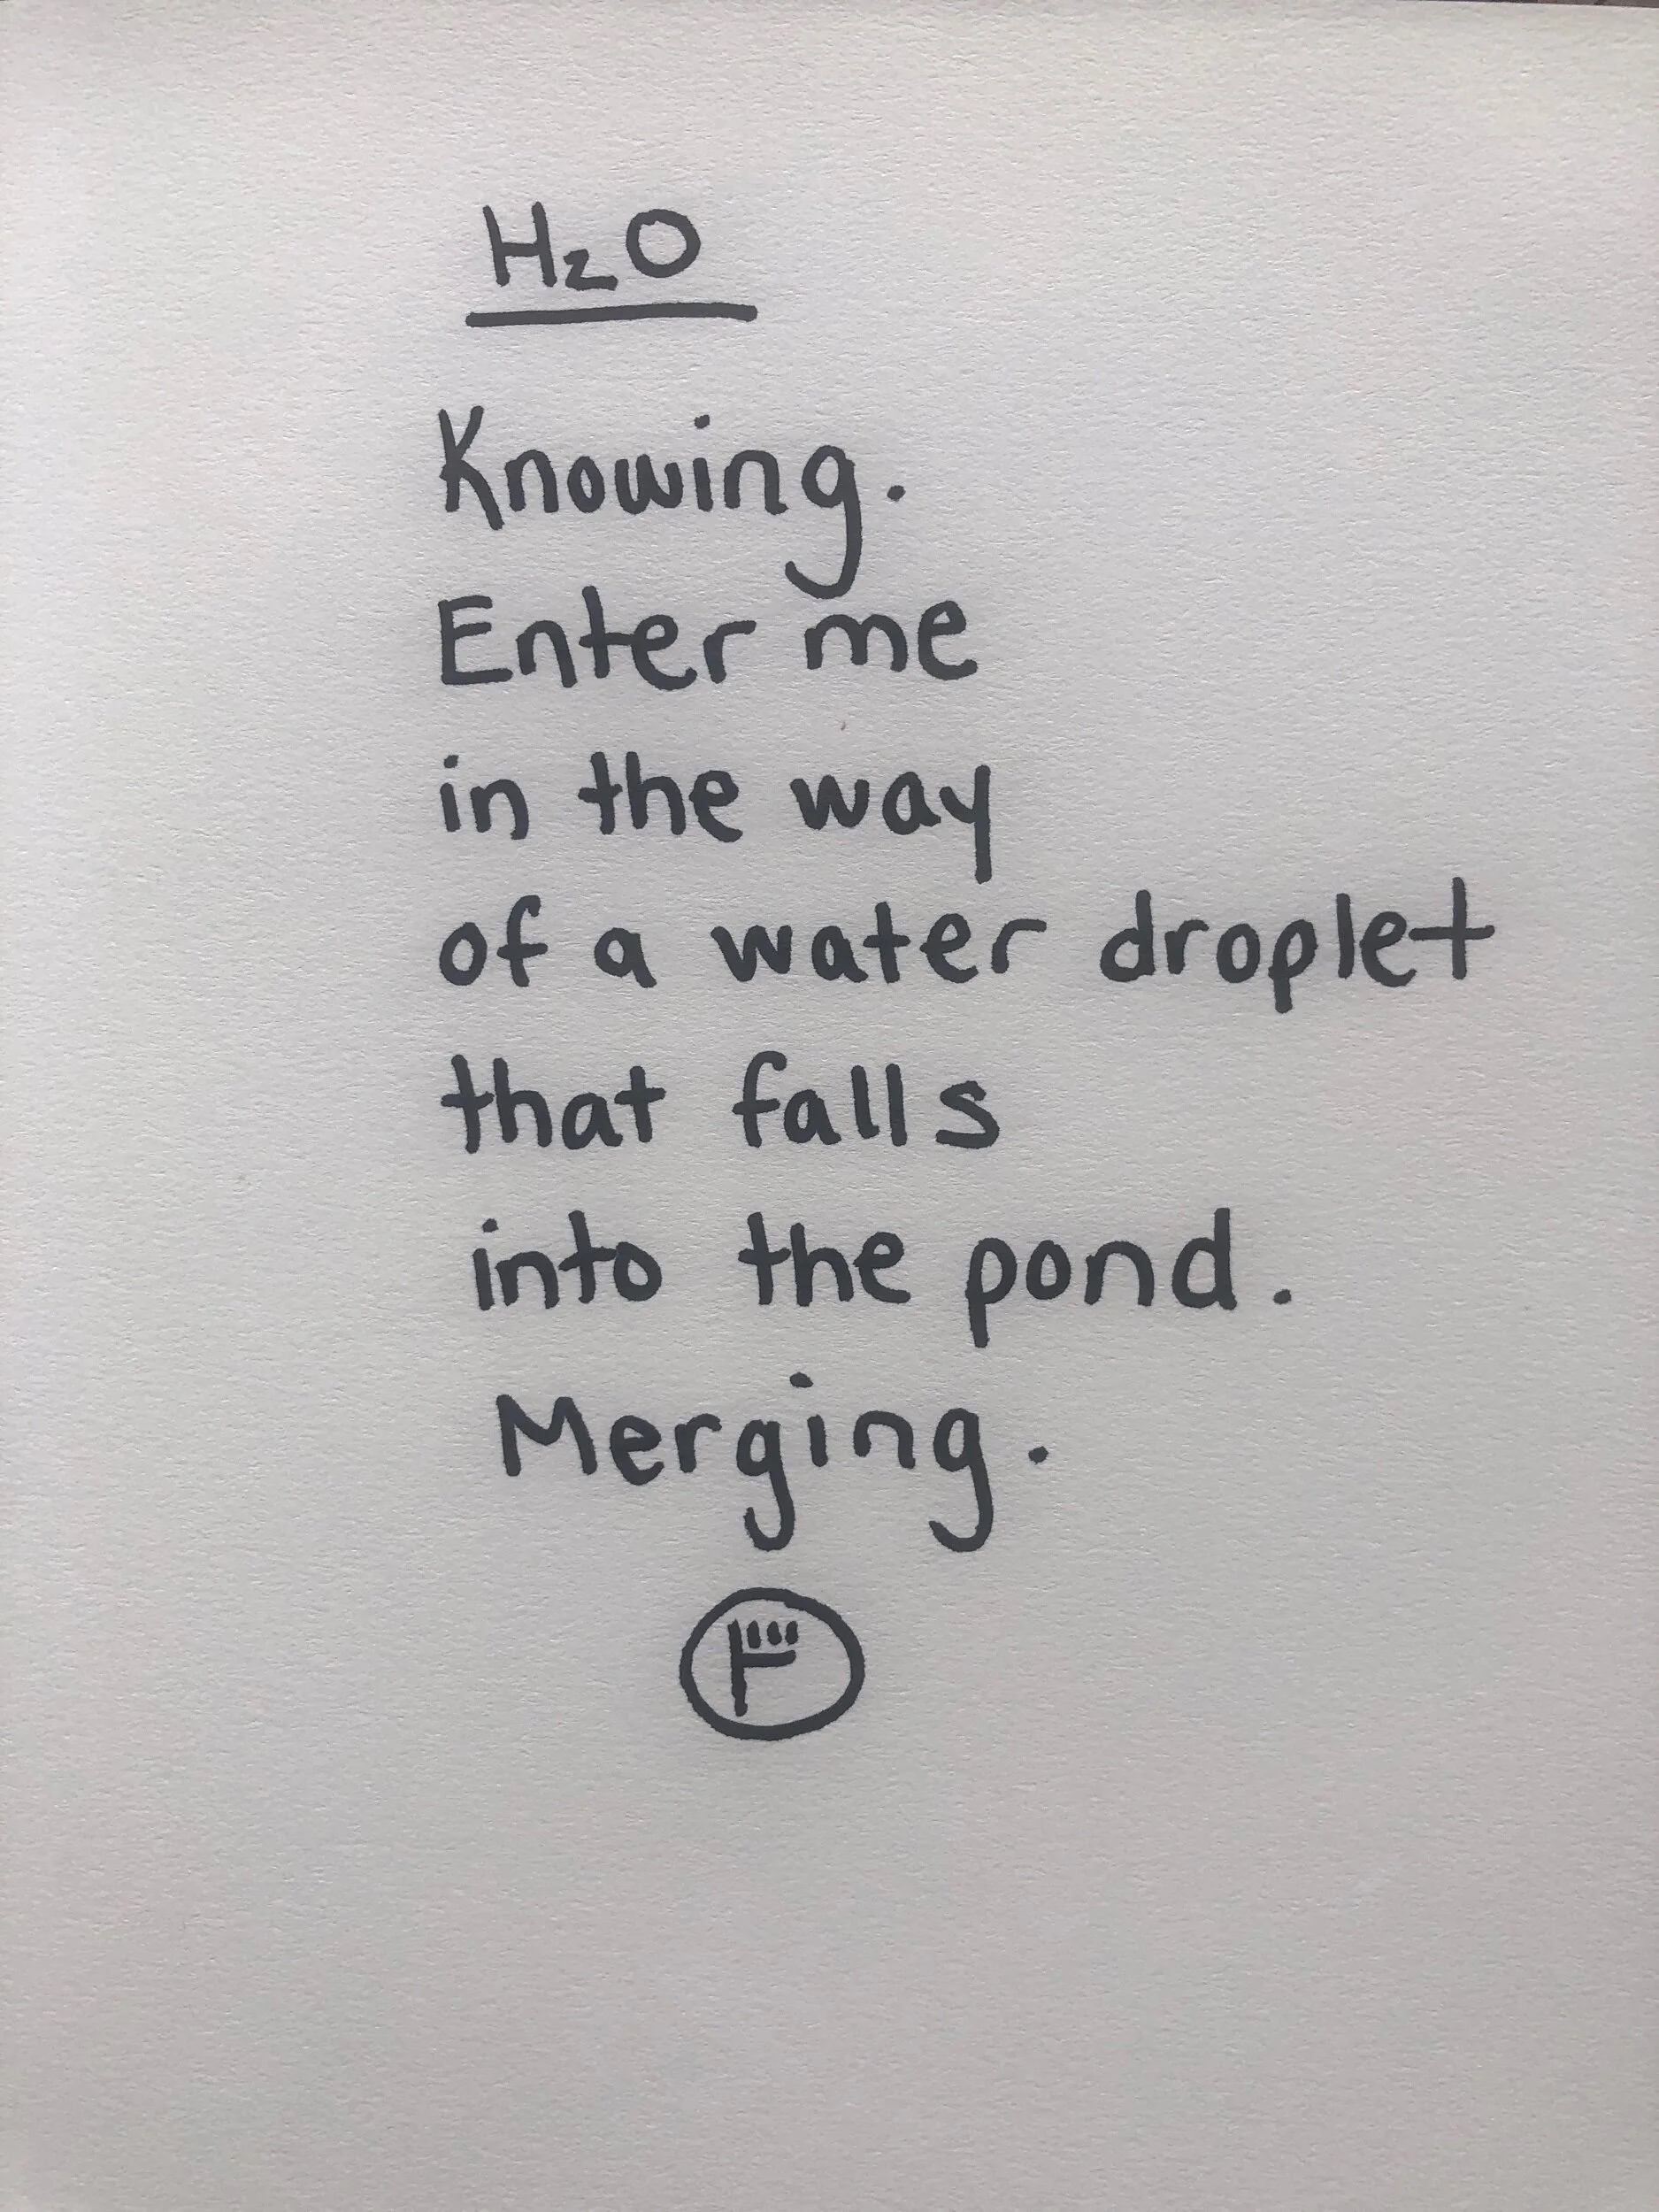 H2O
Knowing.
Enter me
in the way
of a water droplet
that falls
into the pond.
Merging.